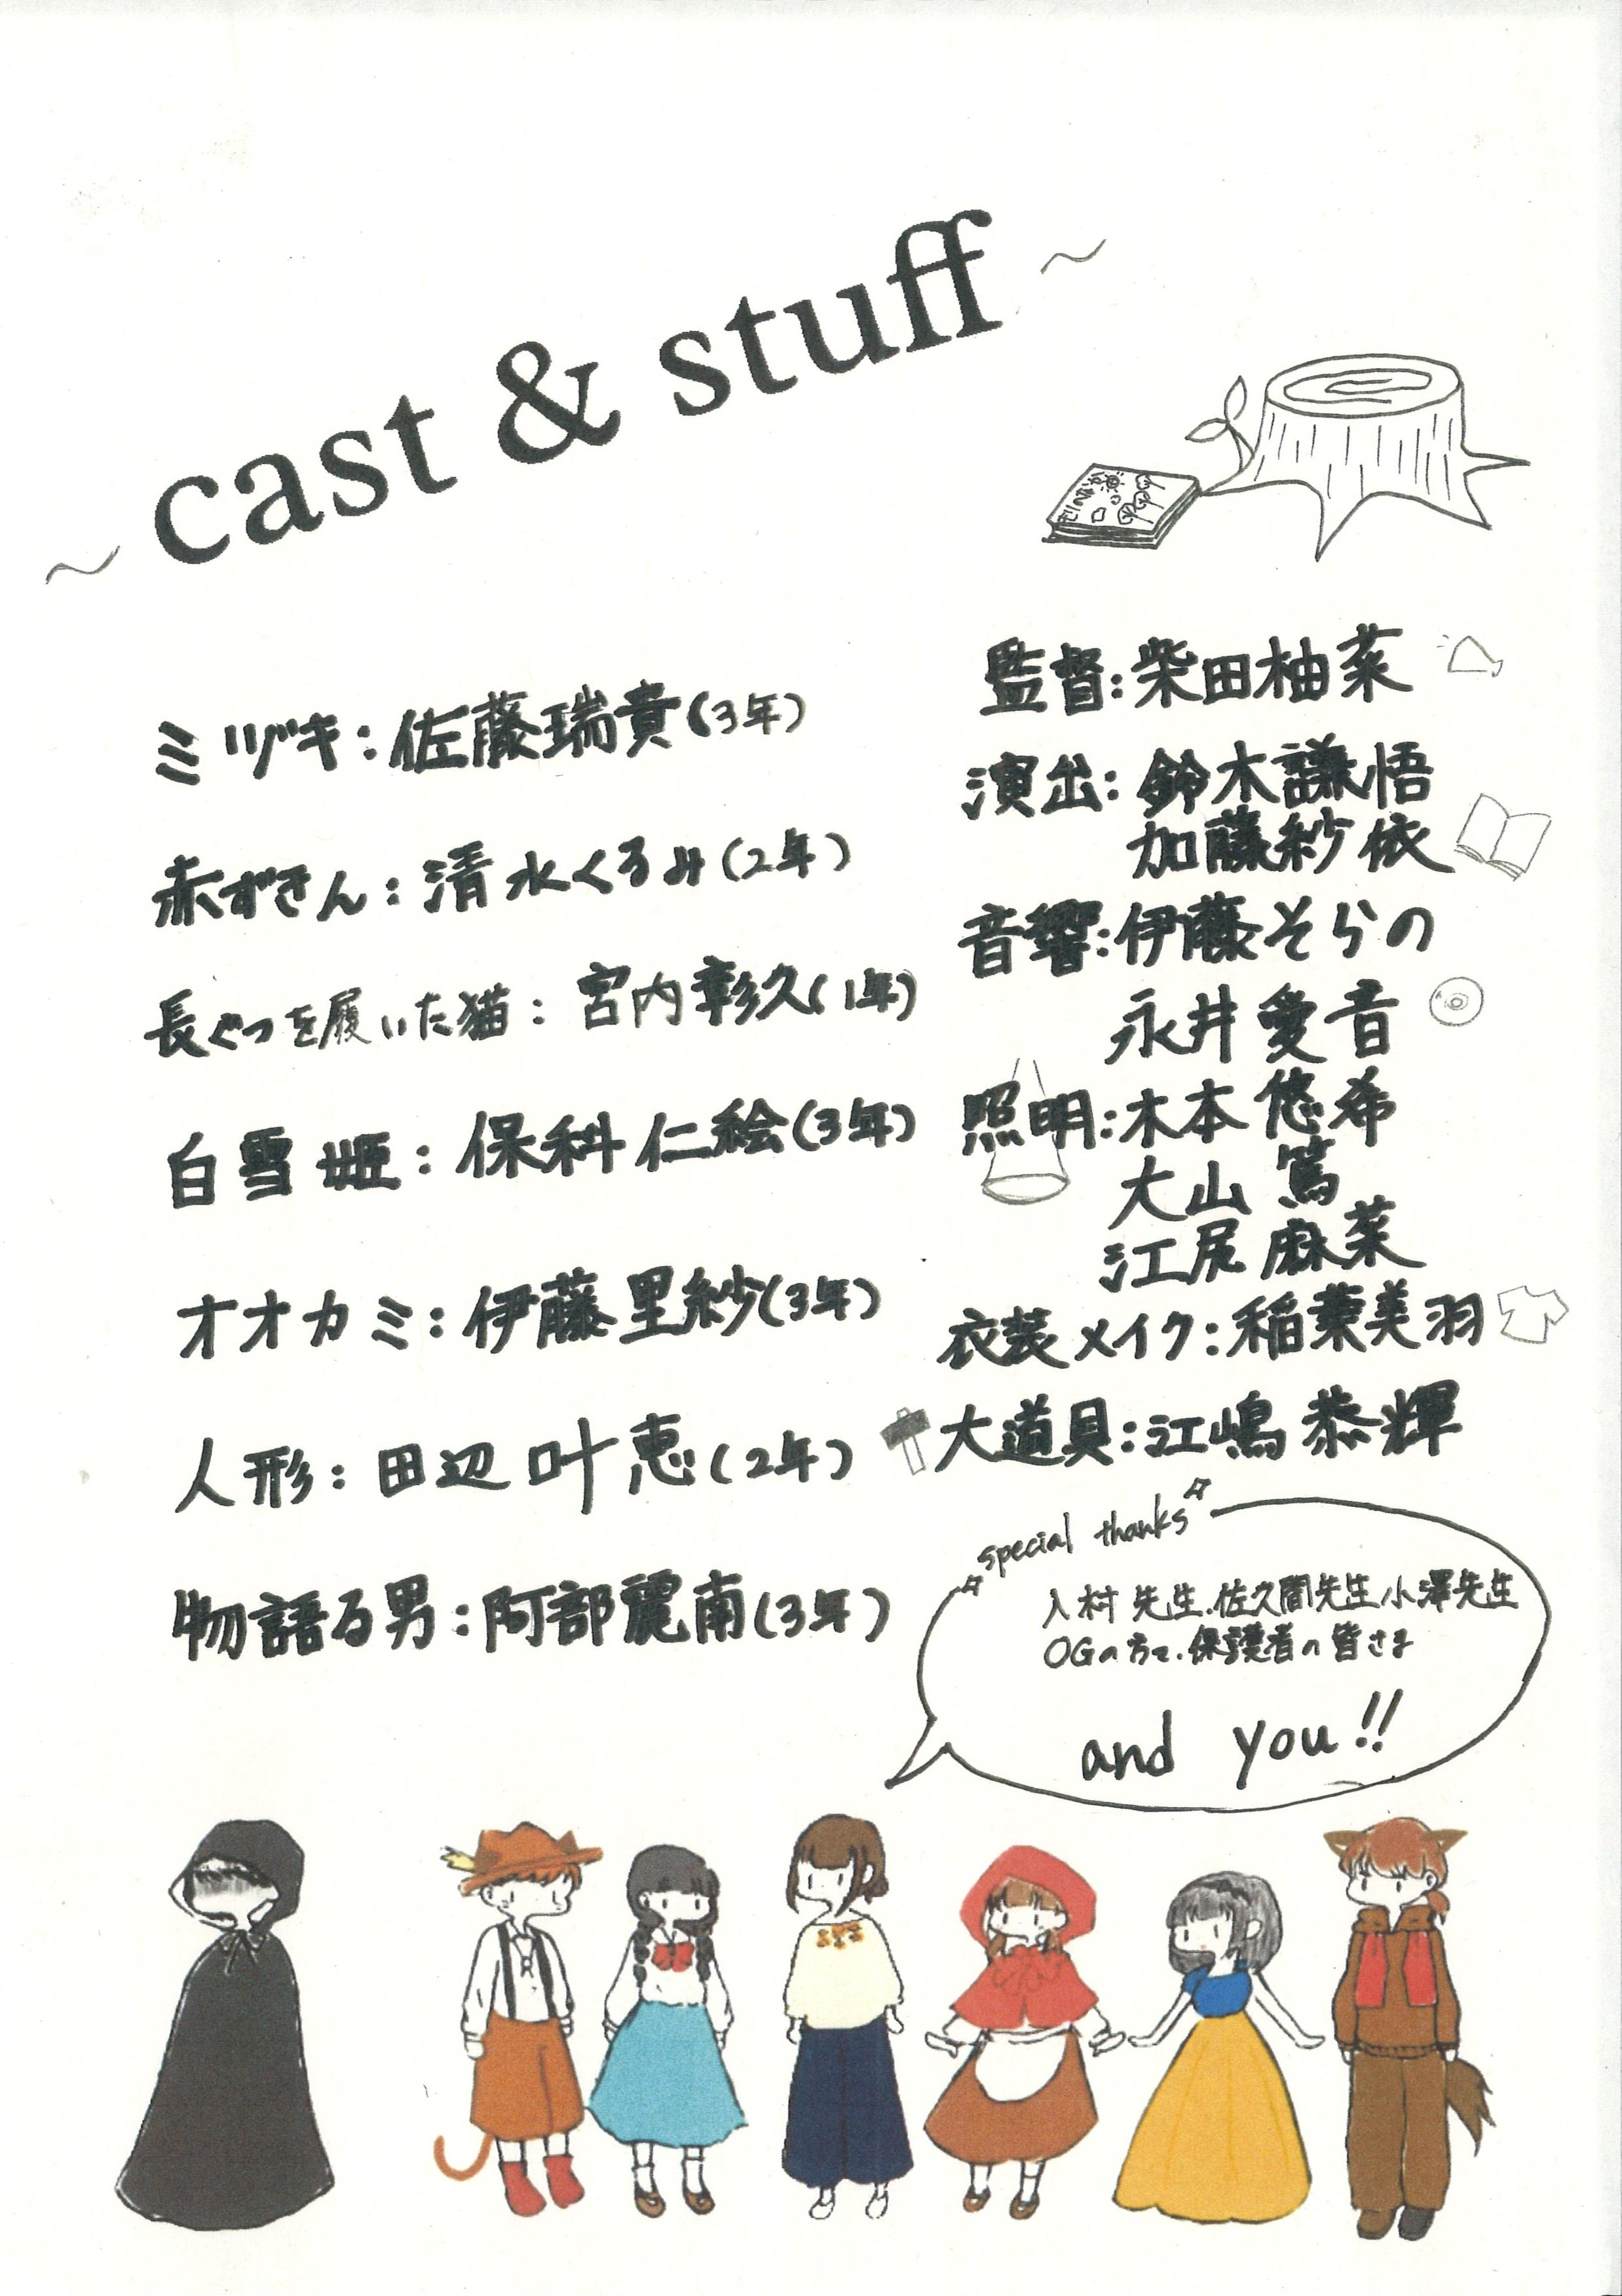 ~ cast & stuff ~
ミヅキ:佐藤瑞貴(3年)
赤ずきん:清水くるみ(2年)
長ぐつを履いた猫:宮内彰久(1年)
白雪姫:保科仁絵(3年)
オオカミ:伊藤里紗(3年)
人形:田辺叶恵(2年)
物語る男:阿部麗南(3年)
監督:柴田柚菜
演出:鈴木謙悟
加藤紗依
音響:伊藤そらの
永井愛音
照明:木本悠希
大山篤
江尻麻菜
衣装メイク:稲葉美羽
大道具:江嶋恭輝
special thanks
入村先生.佐久間先生小澤先生
OGの方々.保護者の皆さま
and you!!